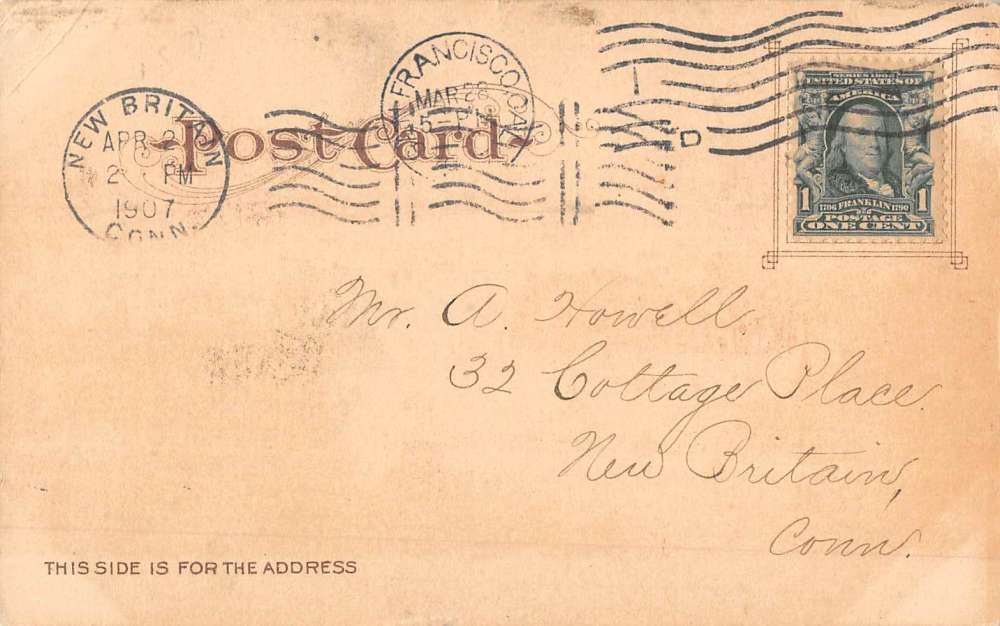 NEW BRITAIN
APR 2
2 PM
1907
CONN.
FRANCISCO, CAL.
MAR 28
5-PM
D
Post Card
SERIES 1902
UNITED STATES OF
AMERICA
1 1
1706 FRANKLIN 1790
POSTAGE
ONE CENT
Mr. A. Howell
32 Cottage Place.
New Britain,
Conn.
THIS SIDE IS FOR THE ADDRESS